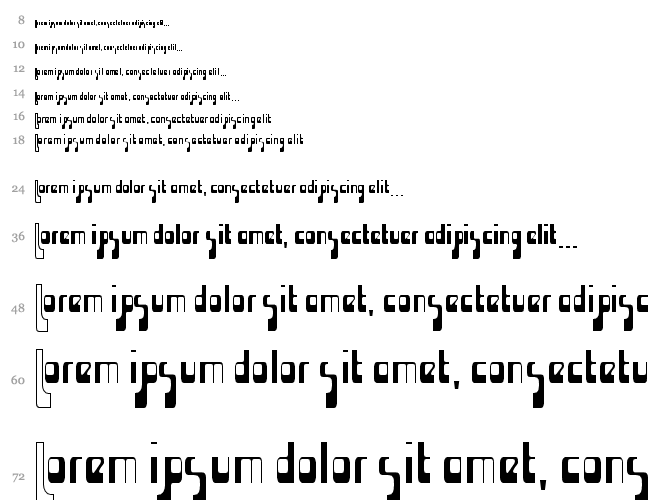 8 Lorem ipsum dolor sit amet, consectetuer adipiscing elit...
10 Lorem ipsum dolor sit amet, consectetuer adipiscing elit...
12 Lorem ipsum dolor sit amet, consectetuer adipiscing elit...
14 Lorem ipsum dolor sit amet, consectetuer adipiscing elit...
16 Lorem ipsum dolor sit amet, consectetuer adipiscing elit
18 Lorem ipsum dolor sit amet, consectetuer adipiscing elit
24 Lorem ipsum dolor sit amet, consectetuer adipiscing elit...
36 Lorem ipsum dolor sit amet, consectetuer adipiscing elit...
48 Lorem ipsum dolor sit amet, consectetuer adipisc
60 Lorem ipsum dolor sit amet, consectetu
72 Lorem ipsum dolor sit amet, cons